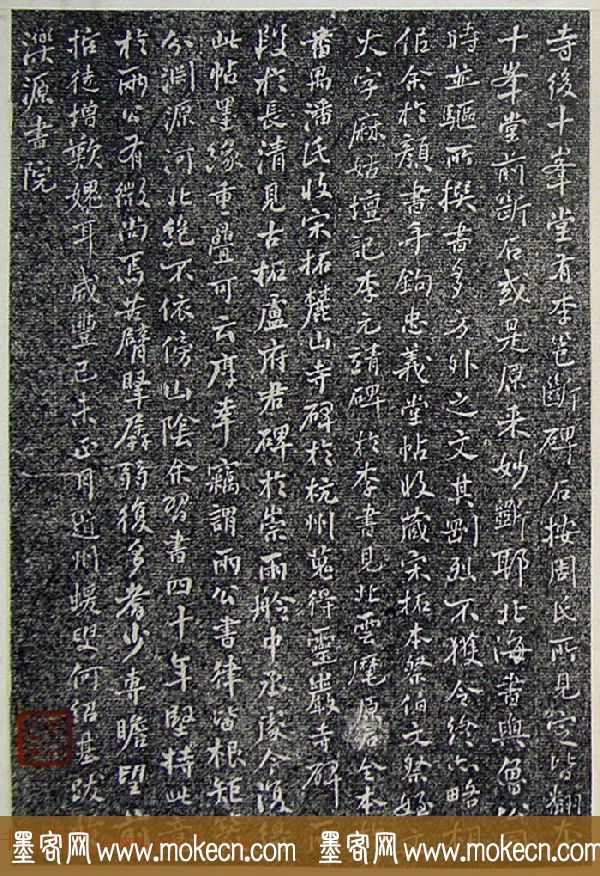 寺後十峯堂有李邕斷碑石按周氏所見定皆翻本
十峯堂前斷石或是原来妙斲耶北海書與魯公同
時並驅所撰書多方外之文其剛烈不獲令終亦略相
似余於顏書手鉤忠義堂帖收藏宋拓本祭伯文祭姪文
大字麻姑壇記李元靖碑於李書見北雲麾原石全本
番禺潘氏收宋拓麓山寺碑於杭州蒐得靈巖寺碑
段於長清見古拓盧府君碑於崇雨舲中丞處今復得
此帖墨緣重疊可云厚幸竊謂兩公書律皆根矩篆
分淵源河北絶不依傍山陰余習書四十年堅持此意
於兩公有微尚焉苦臂腕孱弱復多耆少專瞻望前
㨿徒增歎愧耳咸豐己未正月道州蝯叟何紹基跋於
濼源書院
墨客网 www.mokecn.com 墨客网 www.mokecn.com